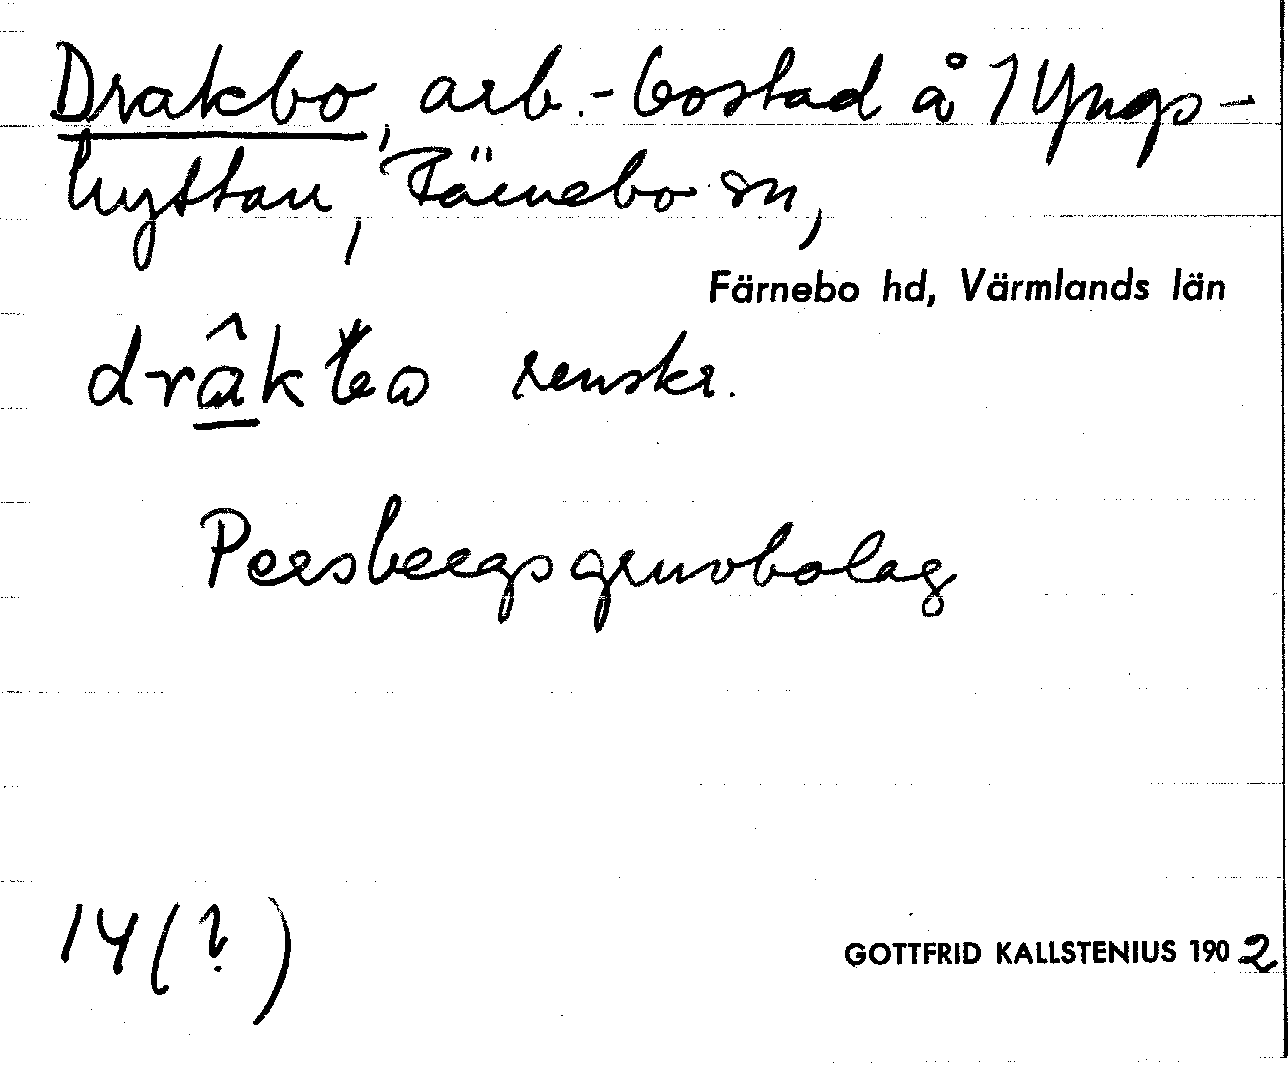 Drakbo, arb.-bostad å 1 Yngs-
hyttan, Färnebo sn,
Färnebo hd, Värmlands län
renskr.
Persbergs gruvbolag
14(?)
GOTTFRID KALLSTENIUS 1902